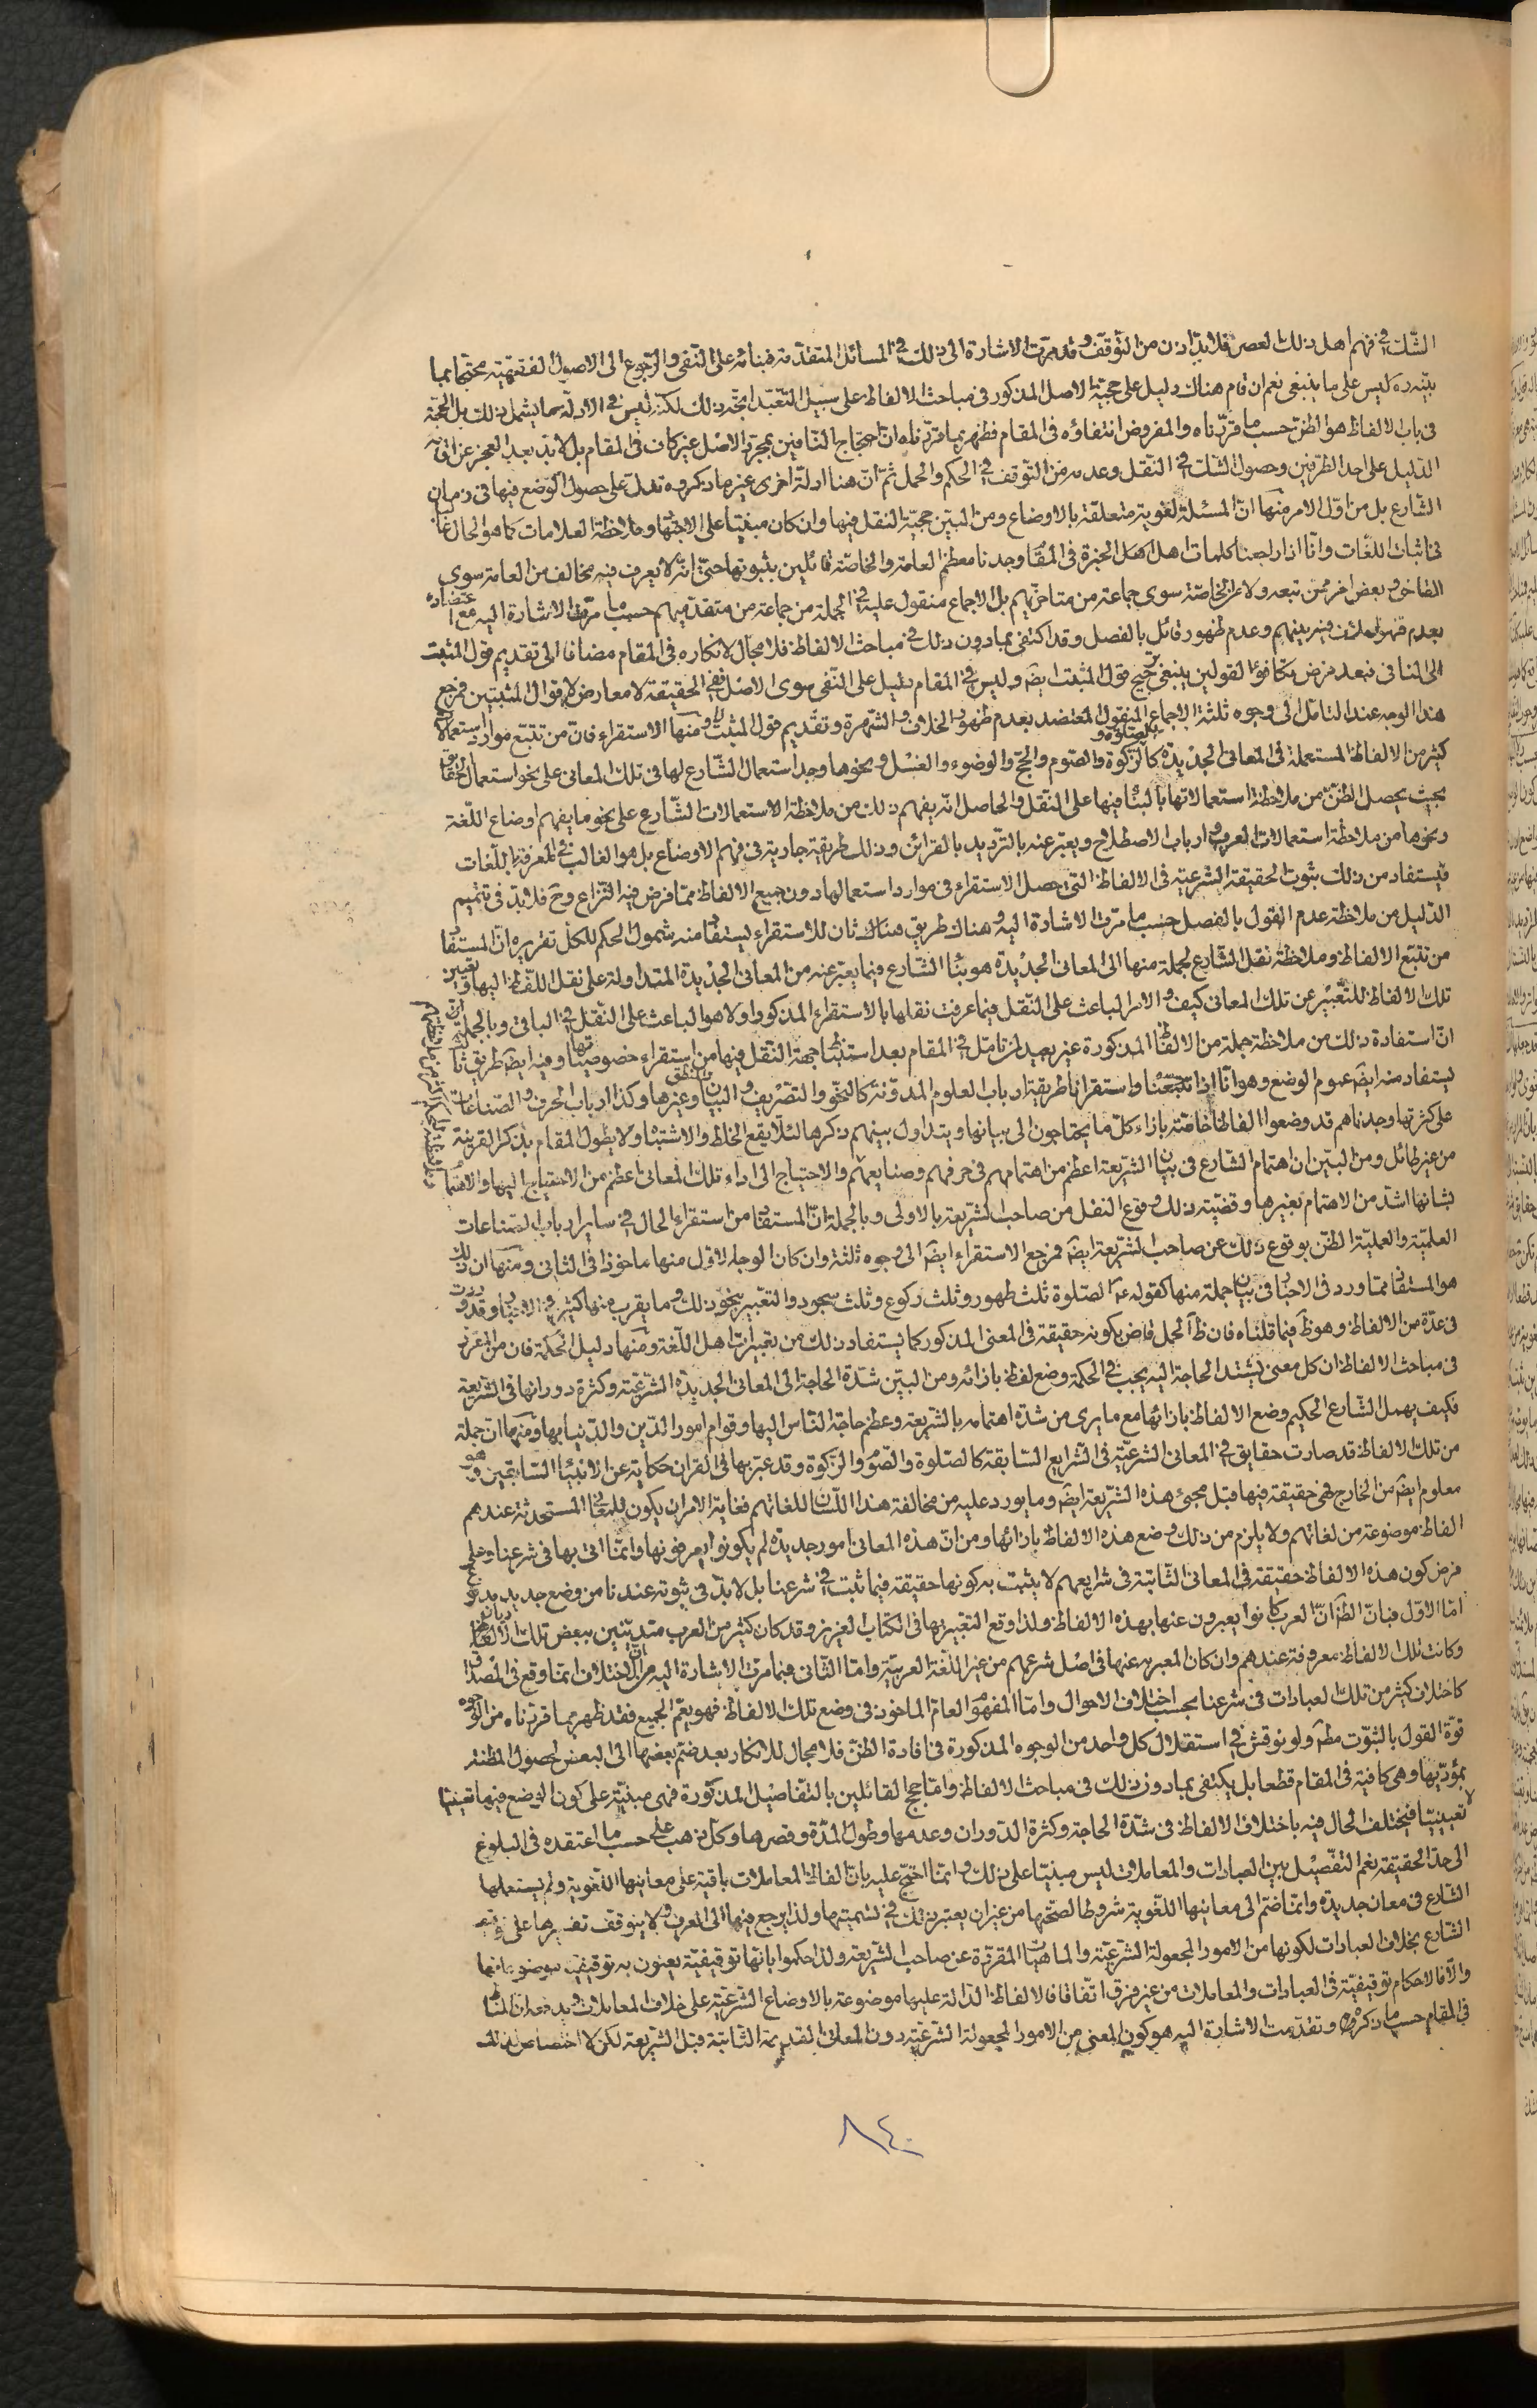 الشك في فهم اهل ذلك العصر فلا بد اذن من التوقف وقد مرت الاشارة الى ذلك في المسائل المتقدمة فبنائه على النفى والرجوع الى الاصول الفقهية محتجا بما
بينه ره ليس على ما ينبغى نعم ان قام هناك دليل على حجية الاصل المذكور في مباحث الالفاظ على سبيل التعبد اتجه ذلك لكنه ليس في الادلة ما يشمل ذلك بل الحجة
فى باب الالفاظ هو الظن حسب ما قررناه والمفروض انتفاؤه فى المقام فظهر بما قررناه ان احتجاج النافين بمجرد الاصل غير كاف فى المقام بل لا بد بعد العجز عن اقامة
الدليل على احد الطرفين وحصول الشك في النقل وعدمه من التوقف في الحكم والحمل ثم ان هنا ادلة اخرى غير ما ذكروه تدل على حصول الوضع فيها فى زمان
الشارع بل من اول الامر منها ان المسئلة لغوية متعلقة بالاوضاع ومن البين حجية النقل فيها وان كان مبنيا على الاجتهاد وملاحظة العلامات كما هو الحال غالبا
فى اثبات اللغات وانا اذا راجعنا كلمات اهل الخبرة فى المقام وجدنا معظم العامة والخاصة قائلين بثبوتها حتى انه لا يعرف فيه مخالف من العامة سوى
القاضى وبعض اخر ممن تبعه ولا من الخاصة سوى جماعة من متاخريهم بل الاجماع منقول عليه في الجملة من جماعة من متقدميهم حسب ما مرت الاشارة اليه مع اعتضاده
بعدم ظهور خلاف فيه بينهم وعدم ظهور قائل بالفصل وقد اكتفى بمادون ذلك في مباحث الالفاظ فلا مجال لانكاره فى المقام مضافا الى تقديم قول المثبت
الى النافى فبعد فرض تكافؤ القولين ينبغى ترجيح قول المثبت ايضا وليس في المقام دليل على النفى سوى الاصل ففى الحقيقة لا معارض لاقوال المثبتين فمرجع
هذا الوجه عند التامل الى وجوه ثلثة الاجماع المنقول المعتضد بعدم ظهور الخلاف والشهرة وتقديم قول المثبت ومنها الاستقراء فان من تتبع موارد استعمالات
كثير من الالفاظ المستعملة فى المعانى الجديدة كالصلوة والزكوة والصوم والحج والوضوء والغسل ونحوها وجد استعمال الشارع لها فى تلك المعانى على نحو استعمال الحقايق
بحيث يحصل الظن من ملاحظة استعمالاتها بالبناء فيها على النقل والحاصل انه يفهم ذلك من ملاحظة الاستعمالات الشارع على نحو ما يفهم اوضاع اللغة
ونحوها من ملاحظة استعمالات العرب وارباب الاصطلاح ويعبر عنه بالترديد بالقرائن وذلك طريقة جارية فى فهم الاوضاع بل هو الغالب في المعرفة باللغات
فيستفاد من ذلك بثوت الحقيقة الشرعية فى الالفاظ التى حصل الاستقراء فى موارد استعمالها دون جميع الالفاظ مما فرض فيه النزاع وح فلا بد فى تتميم
الدليل من ملاحظة عدم القول بالفصل حسب ما مرت الاشارة اليه وهناك طريق هناك ثان للاستقراء يستفاد منه شمول الحكم للكل تقريره ان المستفاد
من تتبع الالفاظ وملاحظة نقل الشارع لجملة منها الى المعانى الجديدة هو بناء الشارع فيما يعبر عنه من المعانى الجديدة المتداولة على نقل اللفظ اليها وتعيين
تلك الالفاظ للتعبير عن تلك المعانى كيف والامر الباعث على النقل فيما عرفت نقلها بالاستقراء المذكور اولا هو الباعث على النقل في الباقى وبالجملة
ان استفادة ذلك من ملاحظة جملة من الالفاظ المذكورة غير بعيد لمن تامل في المقام بعد استنباط جهة النقل فيها من استقراء خصوصياتها وفيه ايضا طريق ثالث
يستفاد منه ايضا عموم الوضع وهو انا اذا تتبعنا واستقرانا طريقة ارباب العلوم المدونة كالنحو والتصريف والبيان والمنطق وغيرها وكذا ارباب الحرف والصناعات
على كثرتها وجدناهم قد وضعوا الفاظا خاصة بازاء كل ما يحتاجون الى بيانها ويتداول بينهم ذكرها لئلا يقع الخلط والاشتباه ولا يطول المقام بذكر القرينة
من غير طائل ومن البين ان اهتمام الشارع فى بيان الشريعة اعظم من اهتمامهم فى حرفهم وصنايعهم والاحتياج الى اداء تلك المعانى اعظم من الاحتياج اليها والاهتمام
بشانها اشد من الاهتمام بغيرها وقضية ذلك وقوع النقل من صاحب الشريعة بالاولى وبالجملة ان المستفاد من استقراء الحال في ساير ارباب الصناعات
العلمية والعملية الظن بوقوع ذلك عن صاحب الشريعة ايضا فمرجع الاستقراء ايضا الى وجوه ثلثة وان كان الوجه الاول منها ماخوذا فى الثانى ومنها ان ذلك
هو المستفاد مما ورد فى الاخبار فى بيان جملة منها كقوله ع الصلوة ثلث طهور وثلث ركوع وثلث سجود والتعبير بنحو ذلك وما يقرب منها كثير في الاخبار وقد وردت
فى عدة من الالفاظ وهو ظ فيما قلناه فان ظ الحمل قاض بكونه حقيقة فى المعنى المذكور كما يستفاد ذلك من تعبيرات اهل اللغة ومنها دليل الحكمة فان من المقرر
فى مباحث الالفاظ ان كل معنى يشتد الحاجة اليه يجب في الحكمة وضع لفظ بازائه ومن البين شدة الحاجة الى المعانى الجديدة الشرعية وكثرة دورانها فى الشريعة
فكيف يهمل الشارع الحكيم وضع الالفاظ بازائها مع ما يرى من شدة اهتمامه بالشريعة وعظم حاجة الناس اليها وقوام امور الدين والدنيا بها ومنها ان جملة
من تلك الالفاظ قد صارت حقايق في المعانى الشرعية فى الشرايع السابقة كالصلوة والصوم والزكوة وقد عبر بها فى القران حكاية عن الانبياء السابقين وهو
معلوم ايضا من الخارج فهى حقيقة فيها قبل مجئ هذه الشريعة ايضا وما يورد عليه من مخالفة هذا اللسان للغاتهم فغاية الامر ان يكون للمعانى المستحدثة عندهم
الفاظ موضوعة من لغاتهم ولا يلزم من ذلك وضع هذه الالفاظ بازائها ومن ان هذه المعانى امور جديدة لم يكونوا يعرفونها وانما اتى بها فى شرعنا وعلى
فرض كون هذه الالفاظ حقيقة فى المعانى الثابتة فى شرايعهم لا يثبت به كونها حقيقة فيما ثبت في شرعنا بل لا بد فى ثبوته عندنا من وضع جديد مدفوع
اما الاول فبان الظ ان العرب كانوا يعبرون عنها بهذه الالفاظ ولذا وقع التعبير بها فى الكتاب العزيز وقد كان كثير من العرب متدينين ببعض تلك الاديان
وكانت تلك الالفاظ معروفة عندهم وان كان المعبر به عنها فى اصل شرعهم من غير اللغة العربية واما الثانى فبما مرت الاشارة اليه من ان الاختلاف انما وقع فى المصداق
كاختلاف كثير من تلك العبادات فى شرعنا بحسب اختلاف الاحوال واما المفهوم العام الماخوذ فى وضع تلك الالفاظ فهو يعم الجميع فقد ظهر بما قررناه من الوجوه
قوة القول بالثبوت مطلقا ولو نوقش في استقلال كل واحد من الوجوه المذكورة فى افادة الظن فلا مجال للانكار بعد ضم بعضها الى البعض لحصول المظنة
بمؤديها وهى كافية فى المقام قطعا بل يكتفى بمادون ذلك فى مباحث الالفاظ واما حجج القائلين بالتفاصيل المذكورة فهى مبنية على كون الوضع فيها تعينيا
لا تعيينيا فيختلف الحال فيه باختلاف الالفاظ فى شدة الحاجة وكثرة الدوران وعدمها وطول المدة وقصرها وكل ذهب على حسب ما اعتقده فى البلوغ
الى حد الحقيقة نعم التفصيل بين العبادات والمعاملات ليس مبنيا على ذلك وانما احتج عليه بان الفاظ المعاملات باقية على معانيها اللغوية ولم يستعملها
الشارع فى معان جديدة وانما ضم الى معانيها اللغوية شروطا لصحتها من غير ان يعتبر ذلك في تسميتها ولذا يرجع فيها الى العرف ولا يتوقف تفسيرها على توقيف
الشارع بخلاف العبادات لكونها من الامور المجعولة الشرعية والماهيات المقررة عن صاحب الشريعة ولذا حكموا بانها توقيفية يعنون به توقيف موضوعاتها
والا فالاحكام توقيفية فى العبادات والمعاملات من غير فرق اتفاقا فالالفاظ الدالة عليها موضوعة بالاوضاع الشرعية على خلاف المعاملات ويدفعه ان المناط
في المقام حسب ما ذكروه وتقدمت الاشارة اليه هو كون المعنى من الامور المجعولة الشرعية دون المعانى القديمة الثابتة قبل الشريعة لكن لا اختصاص لذلك
٨٤٠